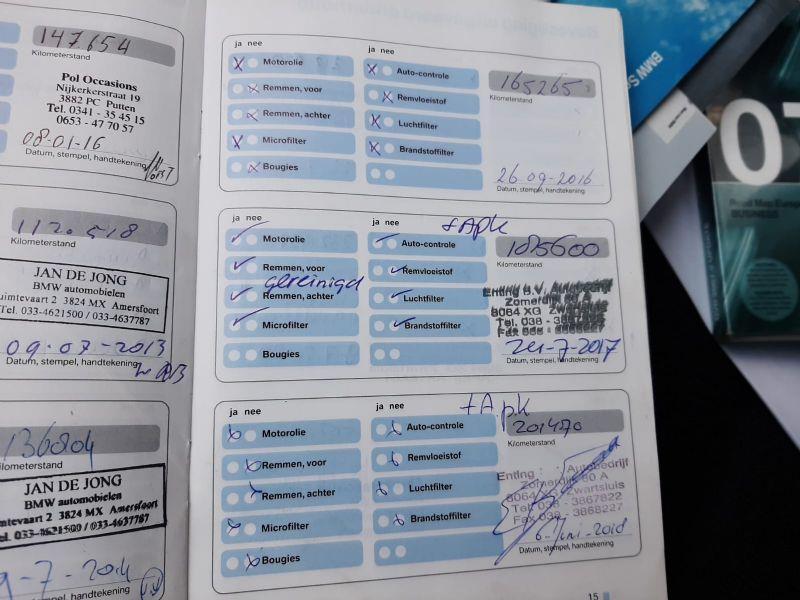 147.654
Kilometerstand
Pol Occasions
Nijkerkerstraat 19
3882 PC Putten
Tel. 0341 - 35 45 15
0653 - 47 70 57
08-01-16
Datum, stempel, handtekening
112.518
Kilometerstand
JAN DE JONG
BMW automobielen
uimtevaart 2 3824 MX Amersfoort
Tel. 033-4621500 / 033-4637787
09-07-2013
Datum, stempel, handtekening
136804
ilometerstand
JAN DE JONG
BMW automobielen
imtevaart 2 3824 MX Amersfoort
el. 033-4621500 / 033-4637787
9-7-2014
Datum, stempel, handtekening
ja nee
Motorolie
Remmen, voor
Remmen, achter
Microfilter
Bougies
ja nee
Auto-controle
Remvloeistof
Luchtfilter
Brandstoffilter
165265
Kilometerstand
26-09-2016
Datum, stempel, handtekening
ja nee
Motorolie
Remmen, voor
gereinigd
Remmen, achter
Microfilter
Bougies
ja nee
+ Apk
Auto-controle
Remvloeistof
Luchtfilter
Brandstoffilter
185600
Kilometerstand
Enting B.V. Autobedrijf
Zomerdijk 80 A
8064 XG Zwartsluis
Tel. 038 - 3867822
Fax 038 - 3868227
24-7-2017
Datum, stempel, handtekening
ja nee
Motorolie
Remmen, voor
Remmen, achter
Microfilter
Bougies
ja nee
+ Apk
Auto-controle
Remvloeistof
Luchtfilter
Brandstoffilter
201470
Kilometerstand
Enting Autobedrijf
Zomerdijk 80 A
8064 Zwartsluis
Tel. 038 - 3867822
Fax 038 - 3868227
6-Juni-2018
Datum, stempel, handtekening
15
BMW Se
Road Map Europ
BUSINESS